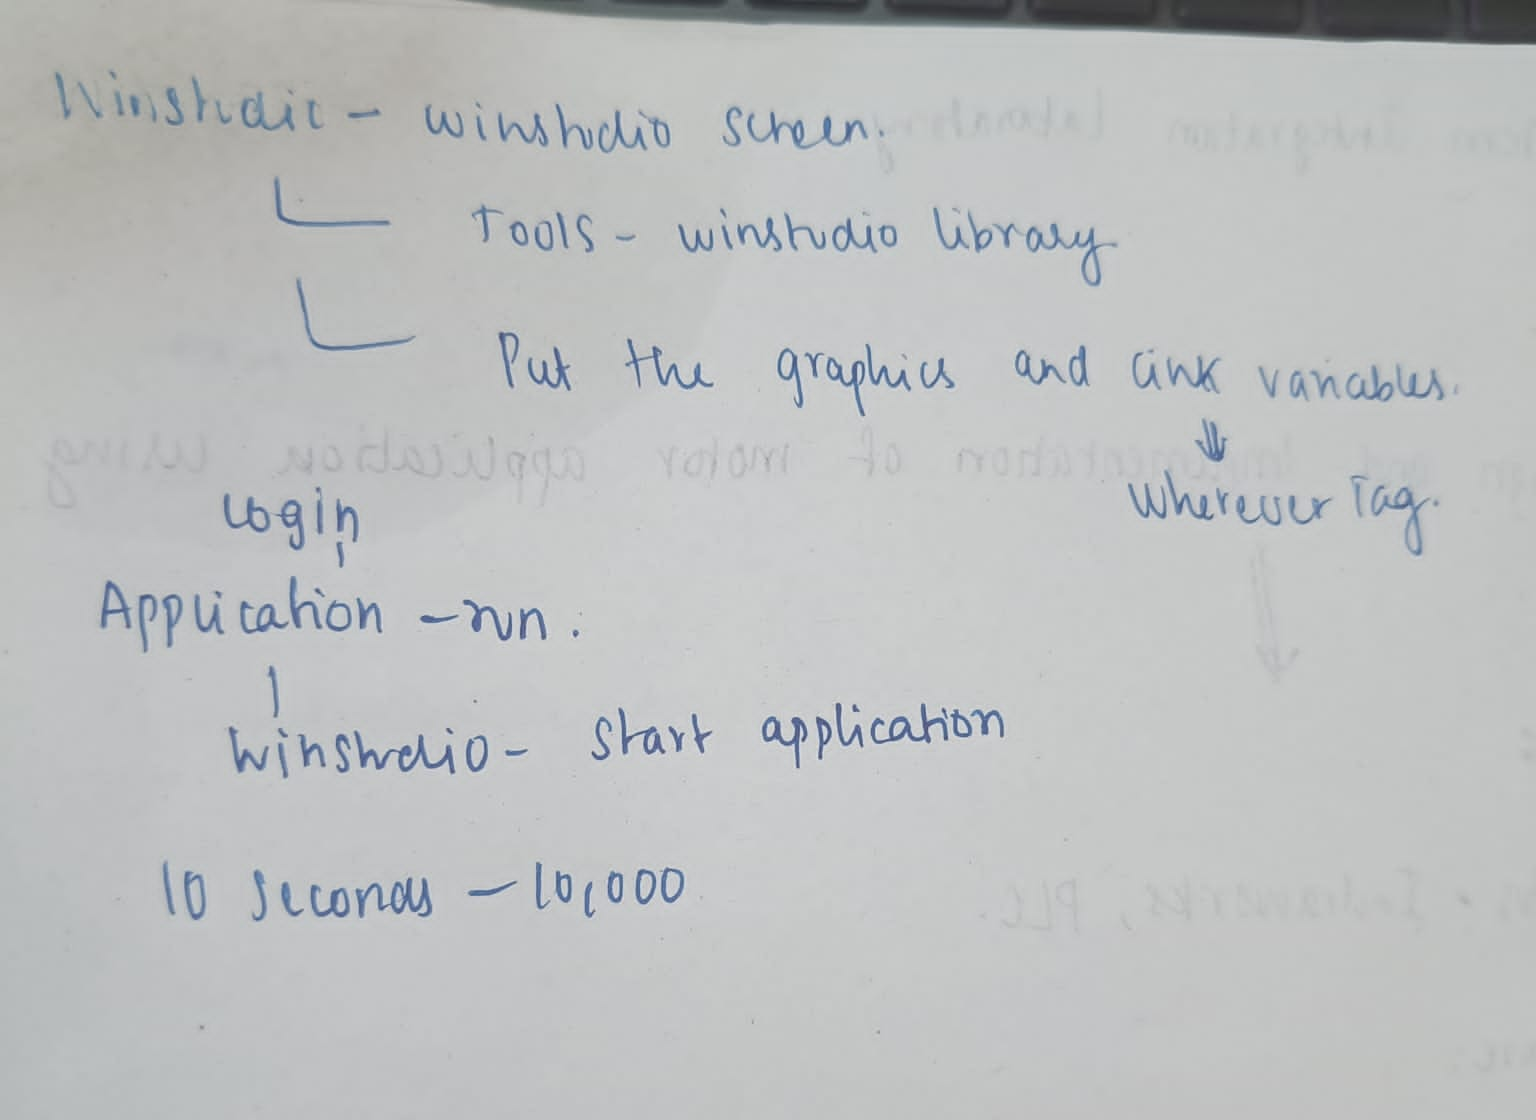 Winstudio - winstudio screen.
Tools - winstudio library
Put the graphics and link variables.
Wherever Tag.
Login
Application - run.
Winstudio - start application
10 seconds - 10,000